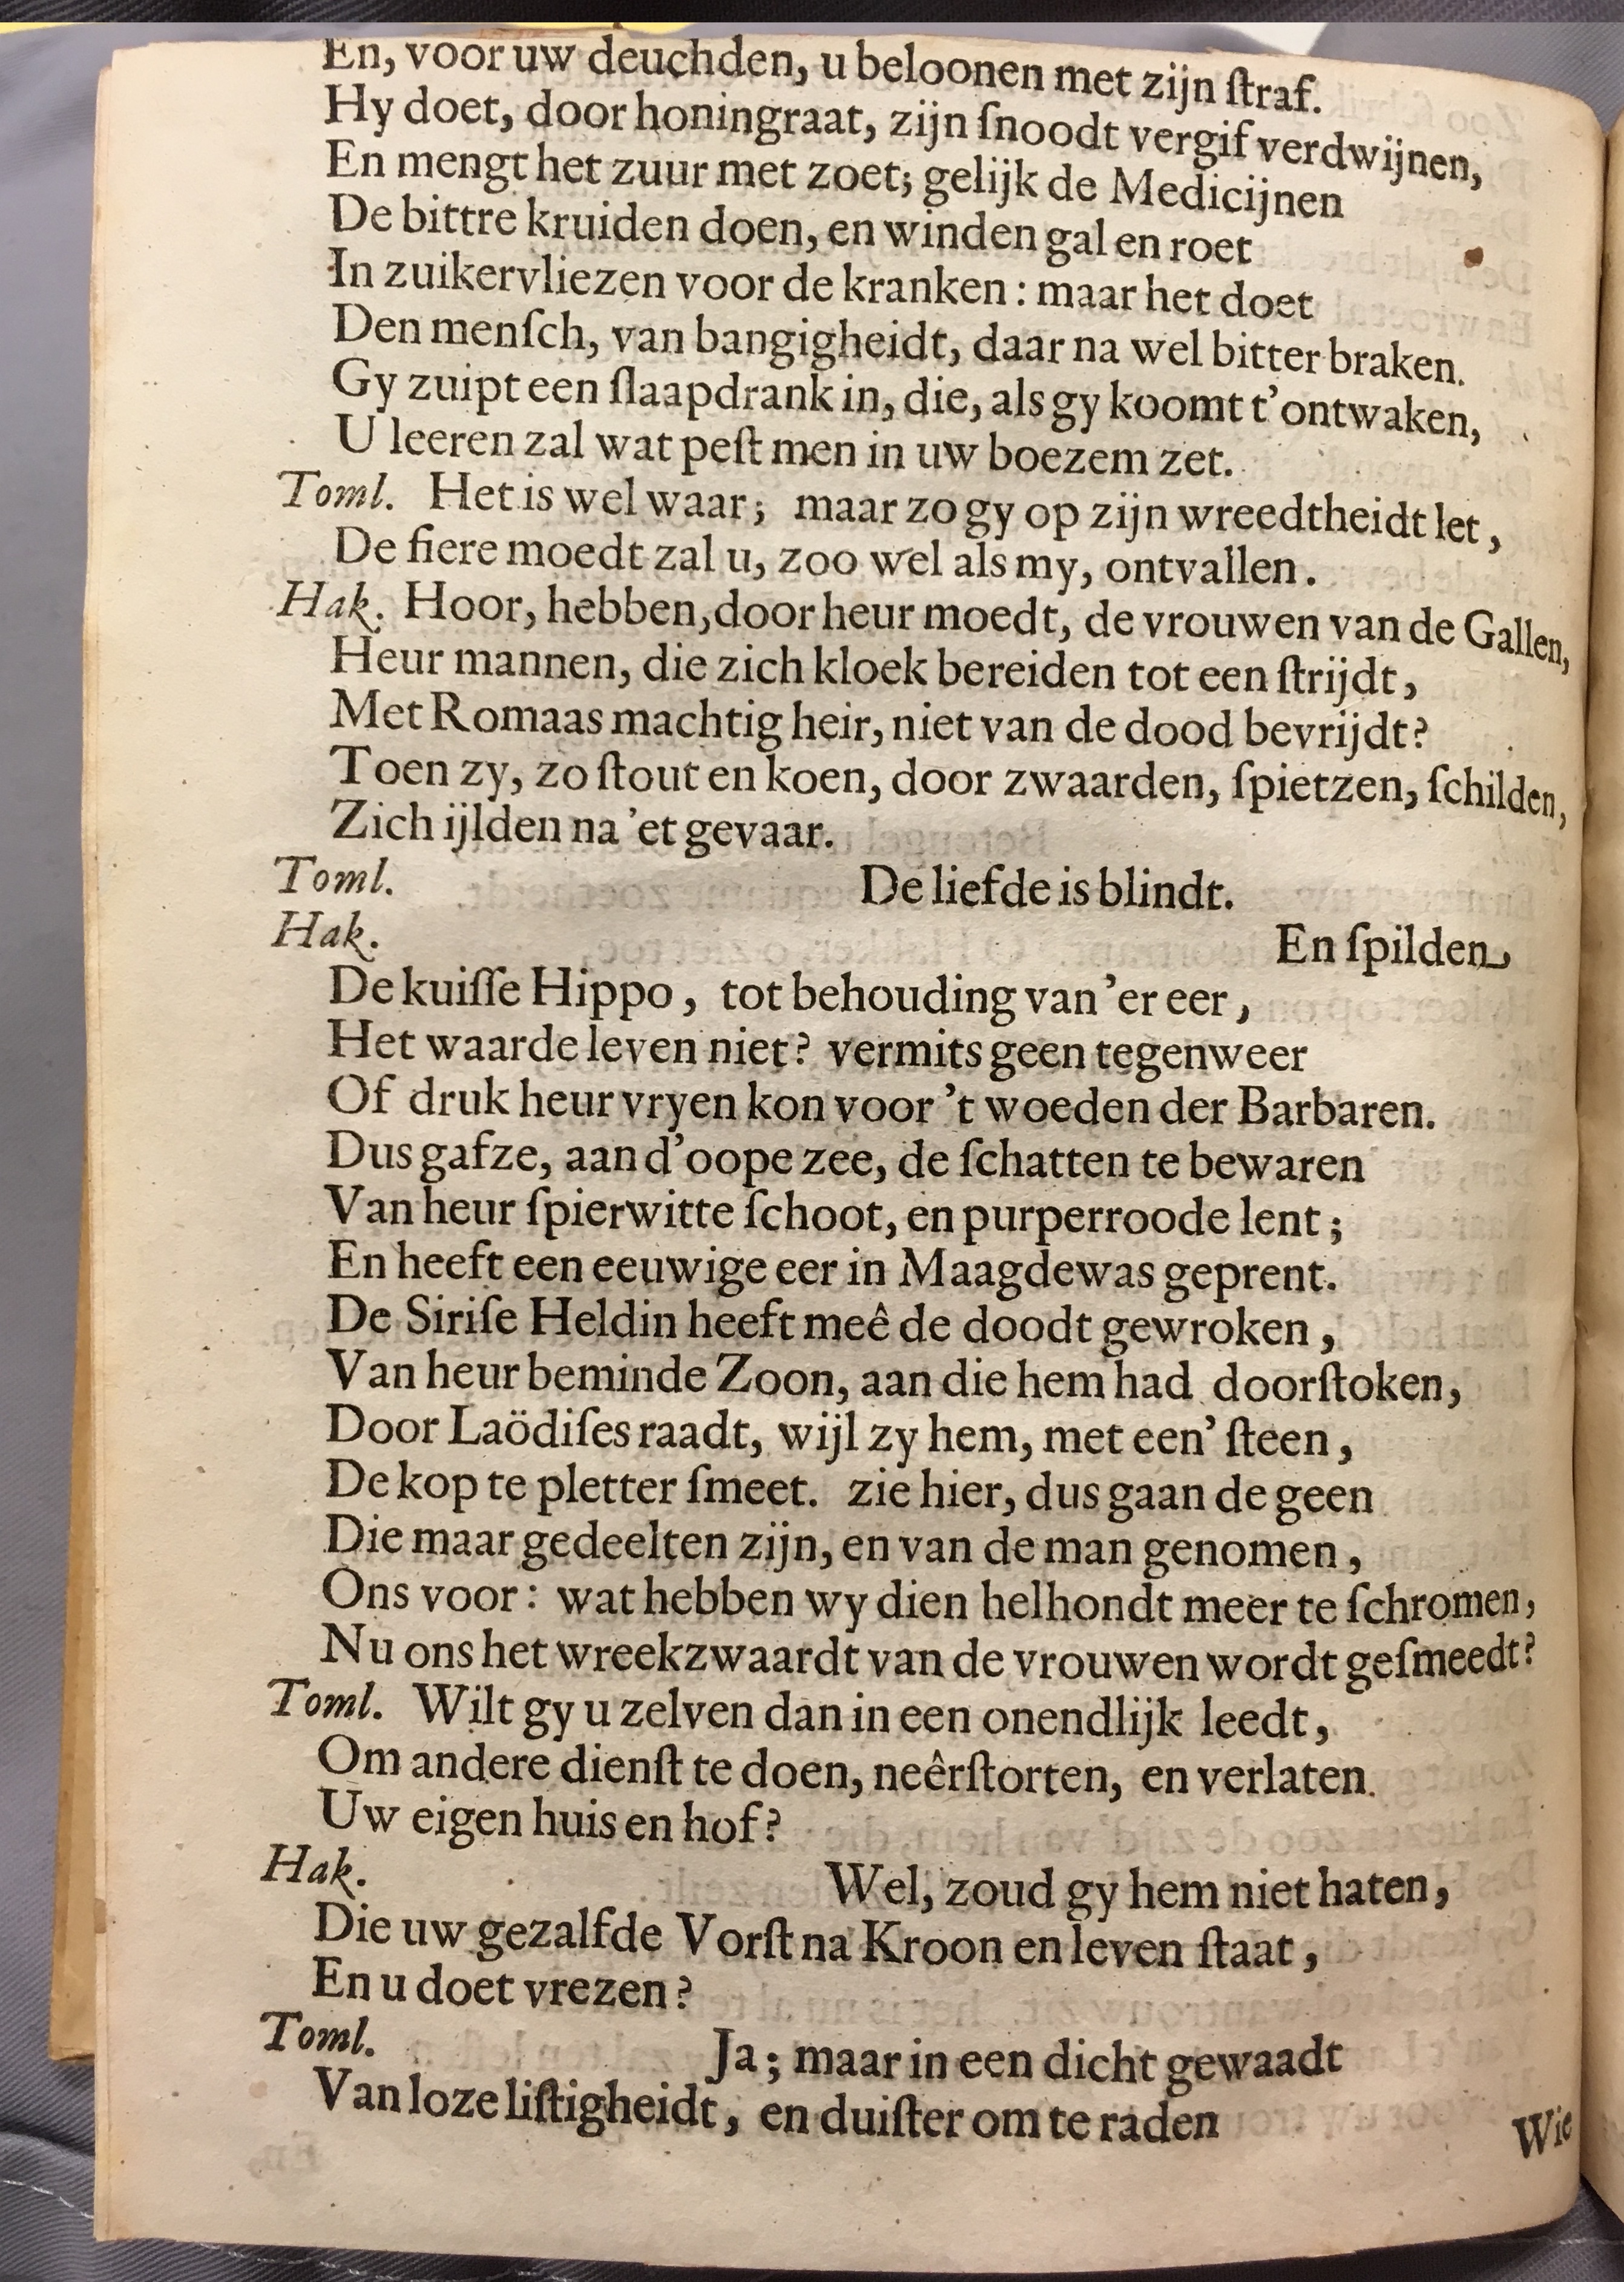 En, voor uw deuchden, u beloonen met zijn ſtraf.
Hy doet, door honingraat, zijn ſnoodt vergif verdwijnen,
En mengt het zuur met zoet; gelijk de Medicijnen
De bittre kruiden doen, en winden gal en roet
In zuikervliezen voor de kranken: maar het doet
Den menſch, van bangigheidt, daar na wel bitter braken.
Gy zuipt een ſlaapdrank in, die, als gy koomt t'ontwaken,
U leeren zal wat peſt men in uw boezem zet.
Toml. Het is wel waar; maar zo gy op zijn wreedtheidt let,
De fiere moedt zal u, zoo wel als my, ontvallen.
Hak. Hoor, hebben, door heur moedt, de vrouwen van de Gallen,
Heur mannen, die zich kloek bereiden tot een ſtrijdt,
Met Romaas machtig heir, niet van de dood bevrijdt?
Toen zy, zo ſtout en koen, door zwaarden, ſpietzen, ſchilden,
Zich ijlden na 'et gevaar.
Toml. De liefde is blindt.
Hak. En ſpilden
De kuiſſe Hippo, tot behouding van 'er eer,
Het waarde leven niet? vermits geen tegenweer
Of druk heur vryen kon voor 't woeden der Barbaren.
Dus gafze, aan d'oope zee, de ſchatten te bewaren
Van heur ſpierwitte ſchoot, en purperroode lent;
En heeft een eeuwige eer in Maagdewas geprent.
De Siriſe Heldin heeft meê de doodt gewroken,
Van heur beminde Zoon, aan die hem had doorſtoken,
Door Laödiſes raadt, wijl zy hem, met een' ſteen,
De kop te pletter ſmeet. zie hier, dus gaan de geen
Die maar gedeelten zijn, en van de man genomen,
Ons voor: wat hebben wy dien helhondt meer te ſchromen,
Nu ons het wreekzwaardt van de vrouwen wordt geſmeedt?
Toml. Wilt gy u zelven dan in een onendlijk leedt,
Om andere dienſt te doen, neêrſtorten, en verlaten
Uw eigen huis en hof?
Hak. Wel, zoud gy hem niet haten,
Die uw gezalfde Vorſt na Kroon en leven ſtaat,
En u doet vrezen?
Toml. Ja; maar in een dicht gewaadt
Van loze liſtigheidt, en duiſter om te raden
Wie